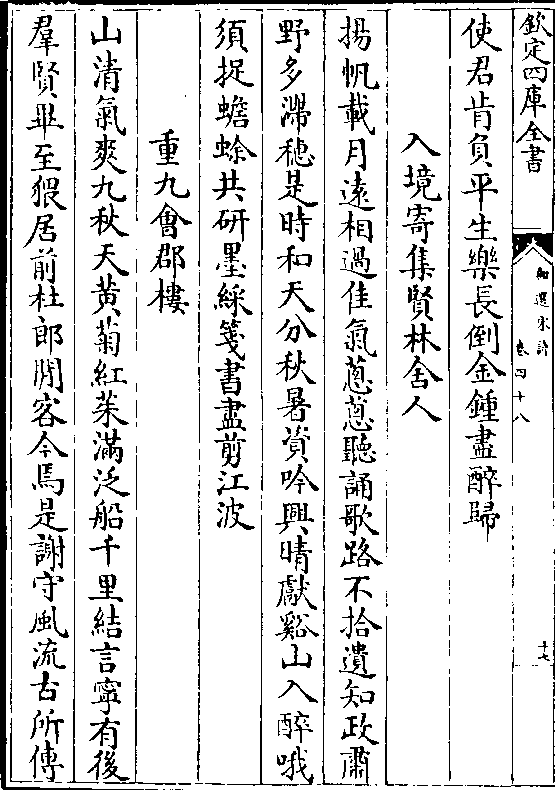 欽定四庫全書
御選宋詩
卷四十八
十七
使君肯負平生樂長倒金鍾盡醉歸
入境寄集賢林舍人
揚帆載月遠相過佳氣蔥蔥聽誦歌路不拾遺知政肅
野多滯穗是時和天分秋暑資吟興晴獻谿山入醉哦
須捉蟾蜍共研墨綵箋書盡剪江波
重九會郡樓
山清氣爽九秋天黃菊紅茱滿泛船千里結言寧有後
羣賢畢至猥居前杜郎閒客今焉是謝守風流古所傳